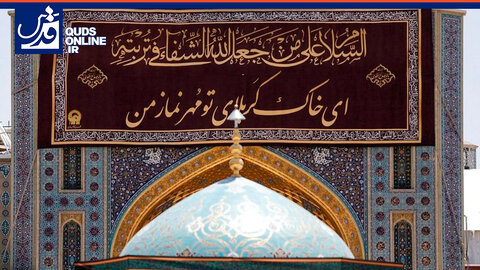 قدس
QUDS
ONLINE
.IR
السلام علی من جعل الله الشفاء فی تربته
ای خاک کربلای تو مهر نماز من